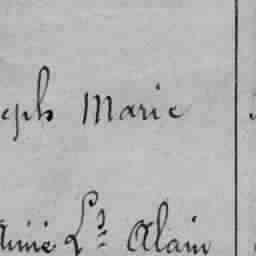 eph Marie
Aimé Ls Alain